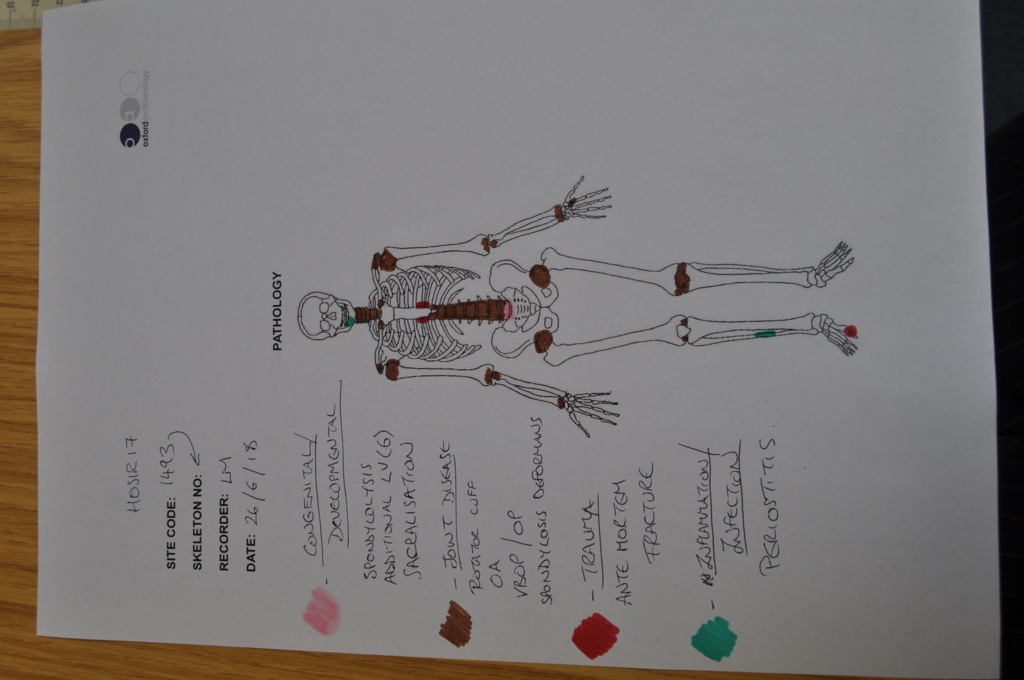 oxfordarchaeology
PATHOLOGY
HOSIR17
SITE CODE: 1493
SKELETON NO:
RECORDER: LM
DATE: 26/6/18
- CONGENITAL/
DEVELOPMENTAL
SPONDYLOLYSIS
ADDITIONAL LV(6)
SACRALISATION
- JOINT DISEASE
ROTATOR CUFF
OA
VBOP/OP
SPONDYLOSIS DEFORMANS
- TRAUMA
ANTE MORTEM
FRACTURE
- INFLAMMATION/
INFECTION
PERIOSTITIS.